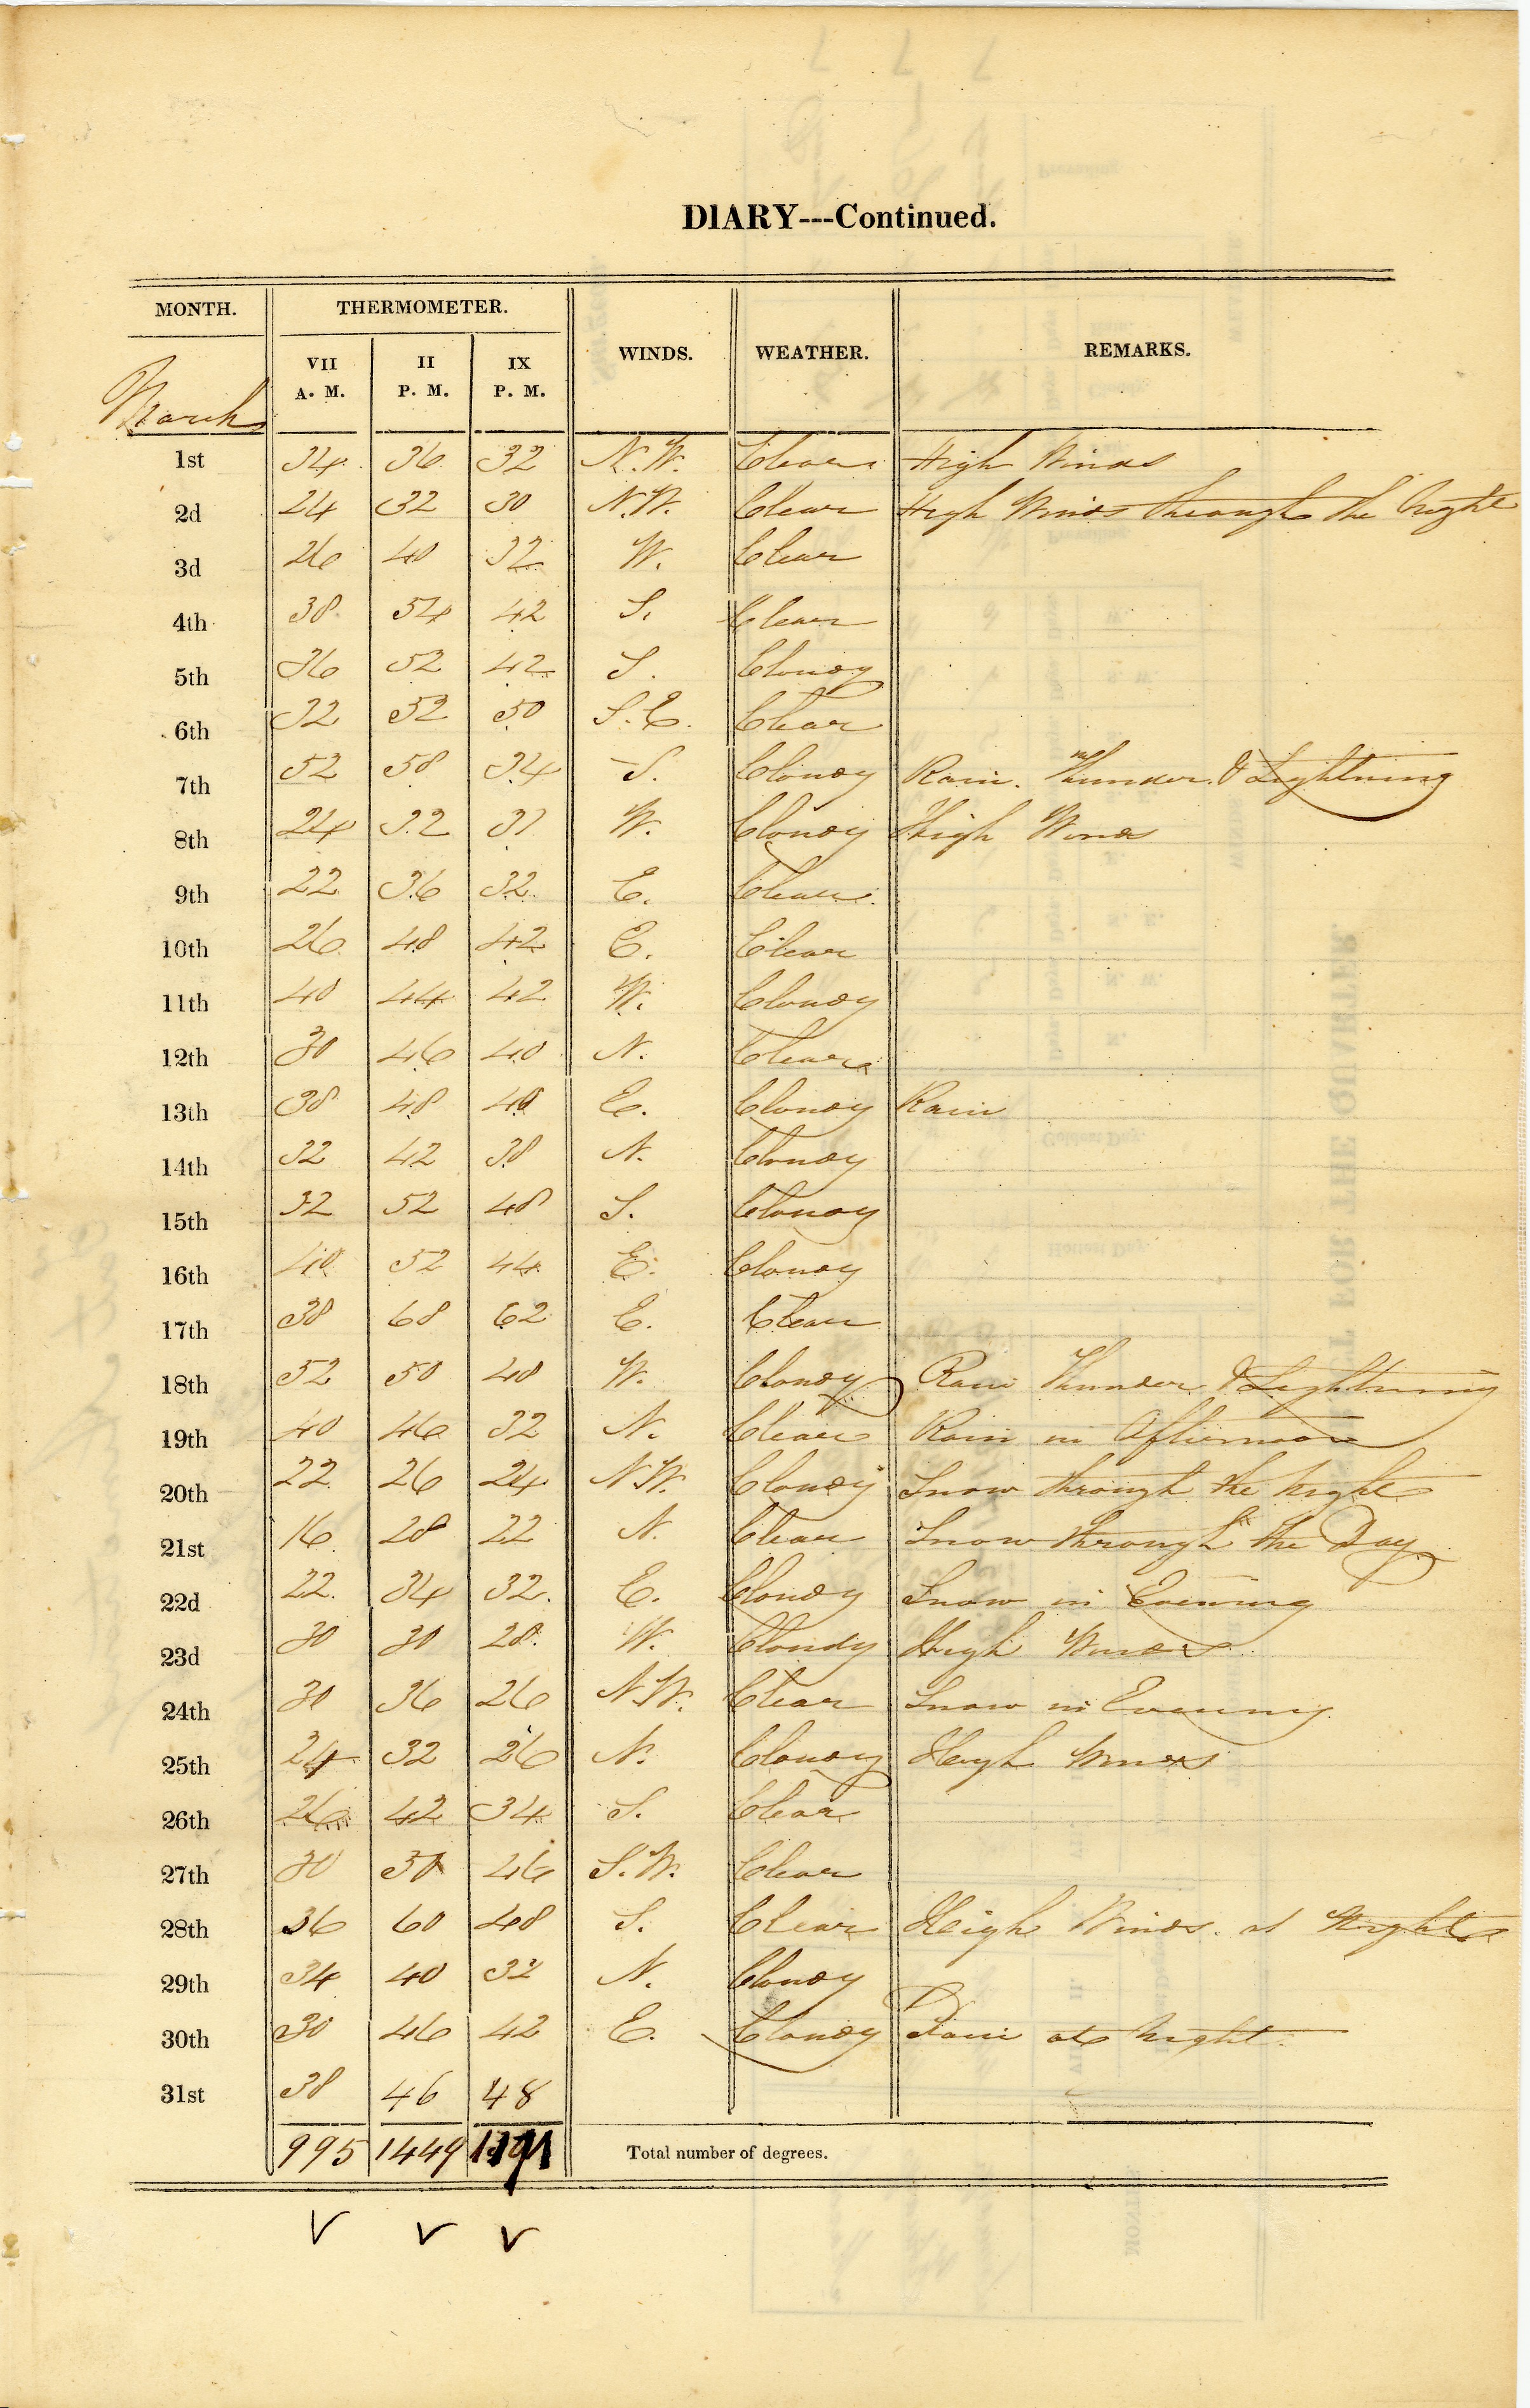 DIARY---Continued.
MONTH. THERMOMETER. WINDS. WEATHER. REMARKS.
VII A. M. II P. M. IX P. M.
March
1st 34 36 32 N.W. Clear High Winds
2d 24 32 30 N.W. Clear High Winds through the Night
3d 26 40 32 W. Clear
4th 38 54 42 S. Clear
5th 36 52 42 S. Cloudy
6th 32 52 50 S.E. Clear
7th 52 58 34 S. Cloudy Rain. Thunder & Lightning
8th 24 32 31 W. Cloudy High Winds
9th 22 36 32 E. Clear
10th 26 48 42 E. Clear
11th 40 44 42 W. Cloudy
12th 30 46 40 N. Clear
13th 38 48 40 E. Cloudy Rain
14th 32 42 38 N. Cloudy
15th 32 52 48 S. Cloudy
16th 40 52 44 E. Cloudy
17th 38 68 62 E. Clear
18th 52 50 48 W. Cloudy Rain Thunder & Lightning
19th 40 46 32 N. Clear Rain in Afternoon
20th 22 26 24 N.W. Cloudy Snow through the Night
21st 16 28 22 N. Clear Snow through the Day
22d 22 34 32 E. Cloudy Snow in Evening
23d 30 30 28 W. Cloudy High Winds
24th 30 36 26 N.W. Clear Snow in Evening
25th 24 32 26 N. Cloudy High Winds
26th 26 42 34 S. Clear
27th 30 46 S.W. Clear
28th 36 60 48 S. Clear High Winds at Night
29th 34 40 32 N. Cloudy
30th 30 46 42 E. Cloudy Rain at Night.
31st 38 46 48
995 1449 Total number of degrees.